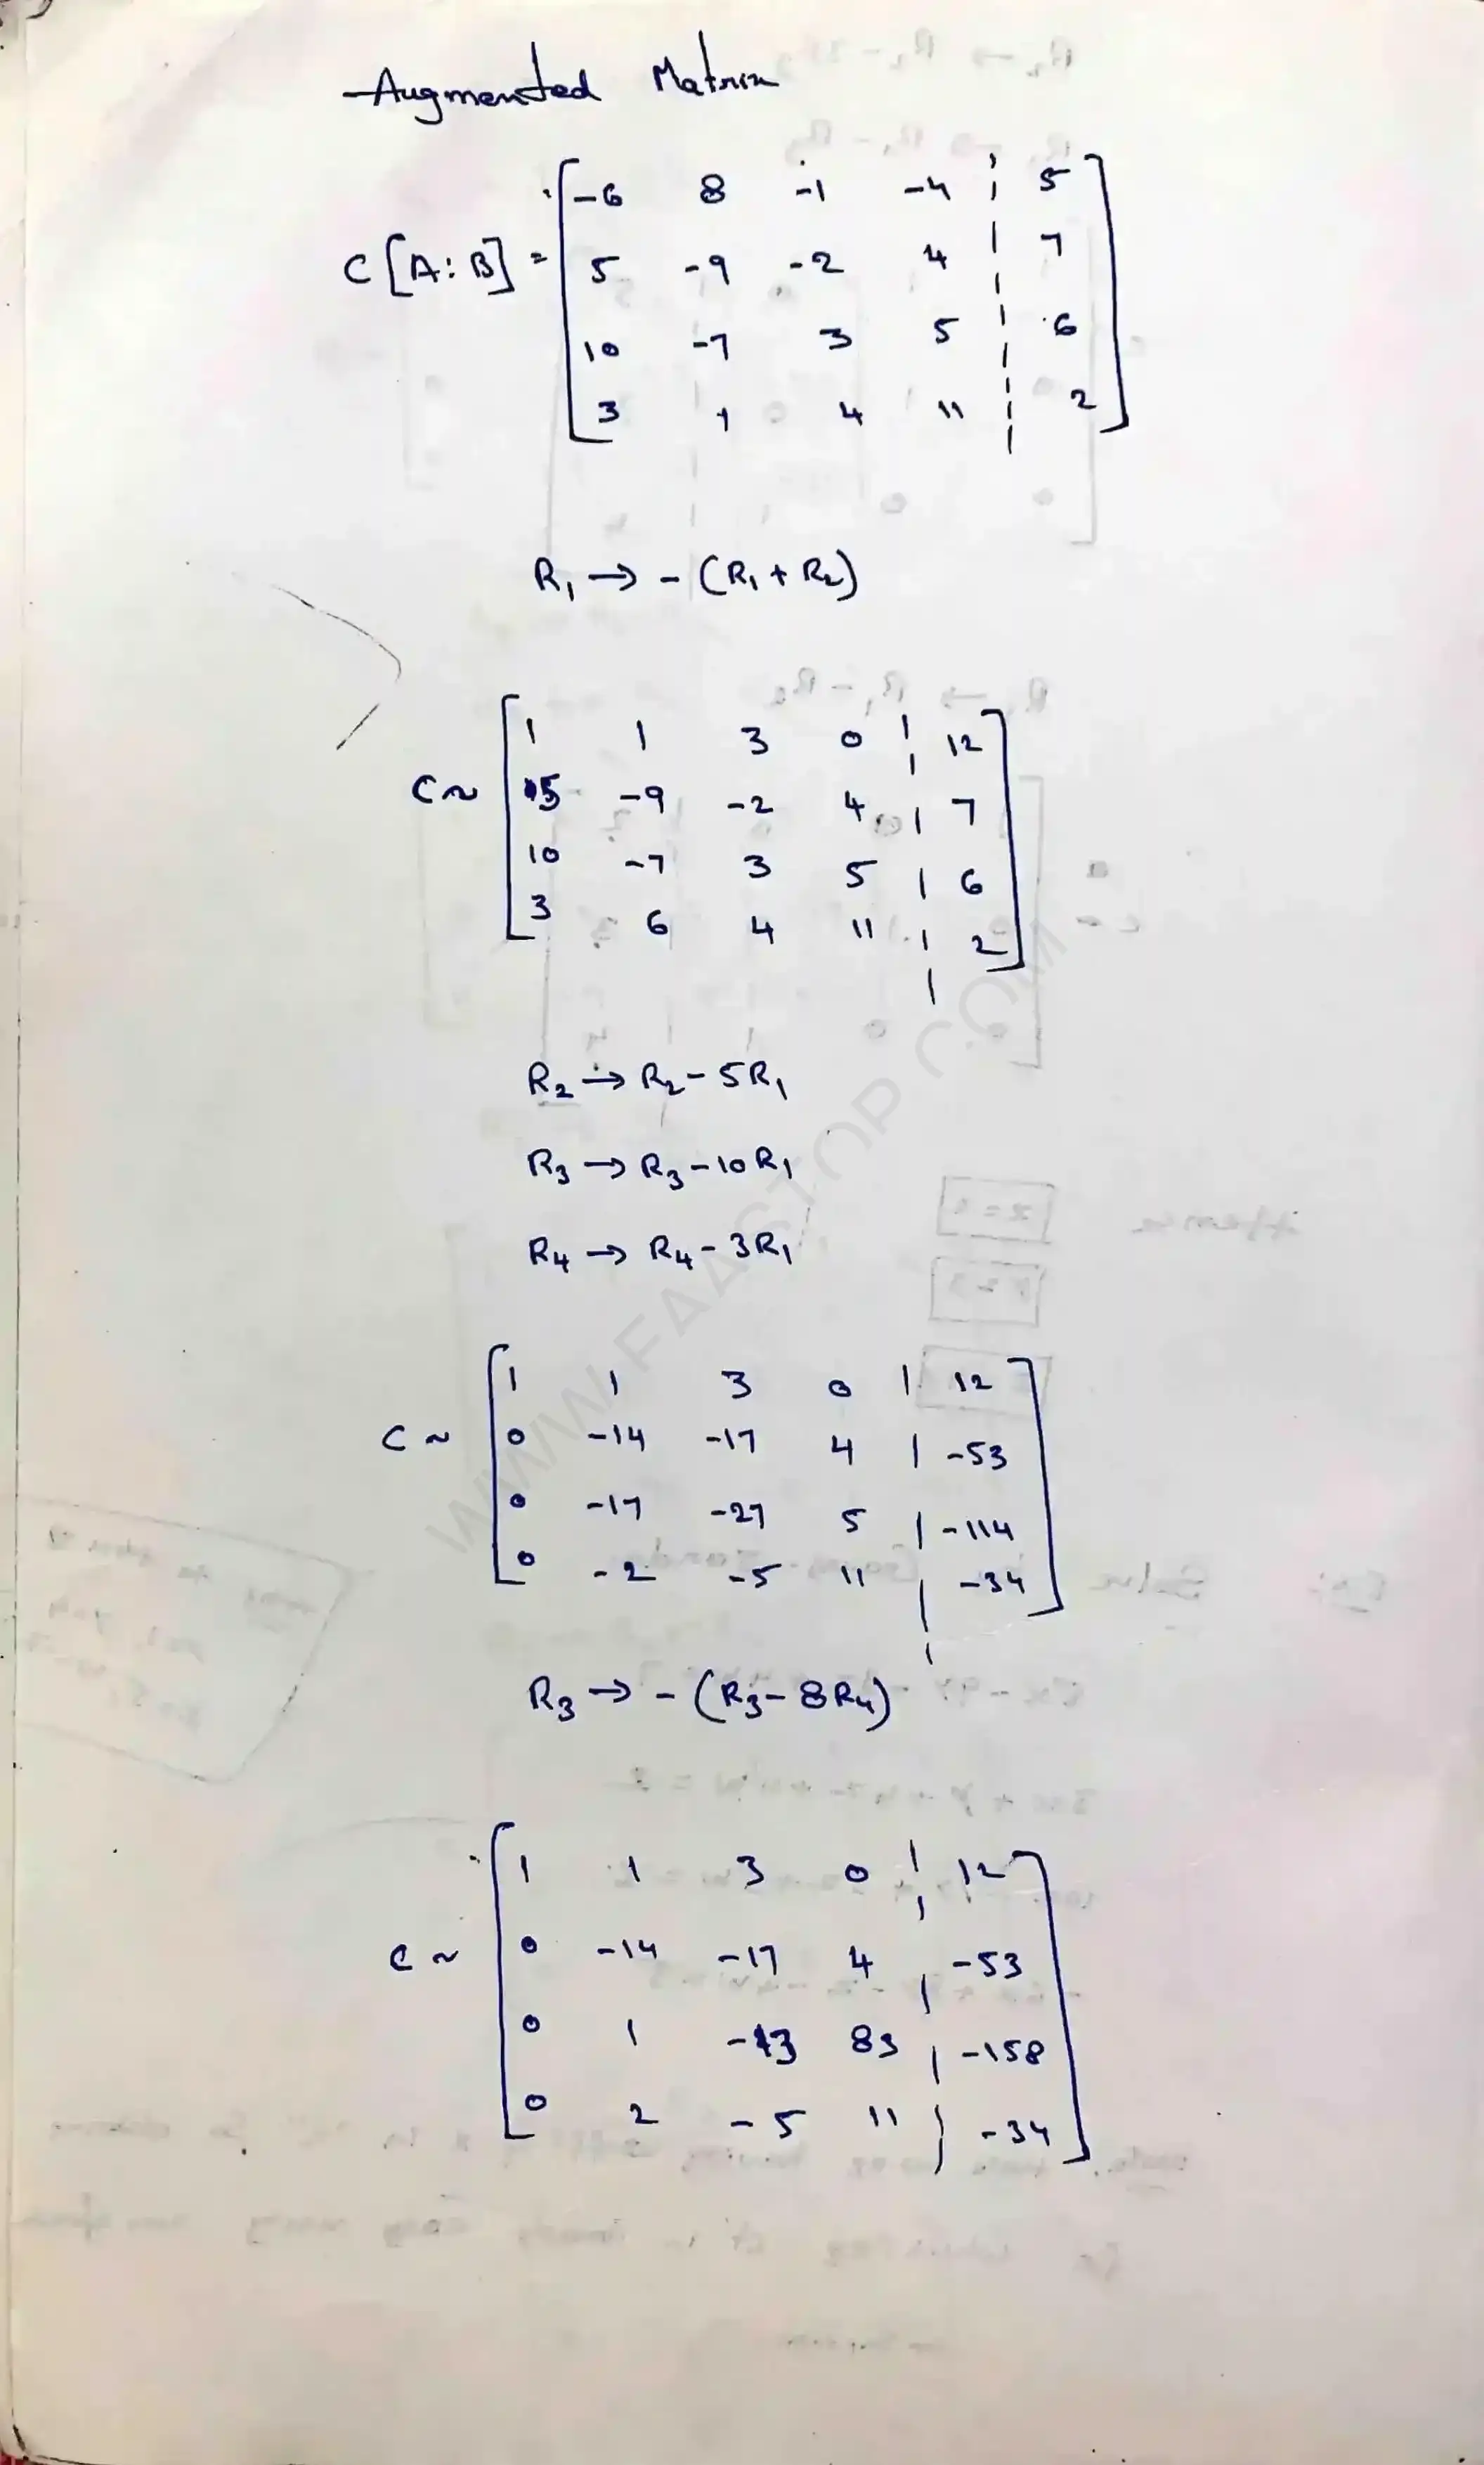 Augmented Matrix
C[A:B] = [ -6 8 -1 -4 | 5
5 -9 -2 4 | 7
10 -7 3 5 | 6
3 1 4 11 | 2 ]
R₁ → -(R₁ + R₂)
C ~ [ 1 1 3 0 | 12
5 -9 -2 4 | 7
10 -7 3 5 | 6
3 6 4 11 | 2 ]
R₂ → R₂ - 5R₁
R₃ → R₃ - 10R₁
R₄ → R₄ - 3R₁
C ~ [ 1 1 3 0 | 12
0 -14 -17 4 | -53
0 -17 -27 5 | -114
0 -2 -5 11 | -34 ]
R₃ → -(R₃ - 8R₄)
C ~ [ 1 1 3 0 | 12
0 -14 -17 4 | -53
0 1 -13 83 | -158
0 2 -5 11 | -34 ]
WWW.FAASTOP.COM